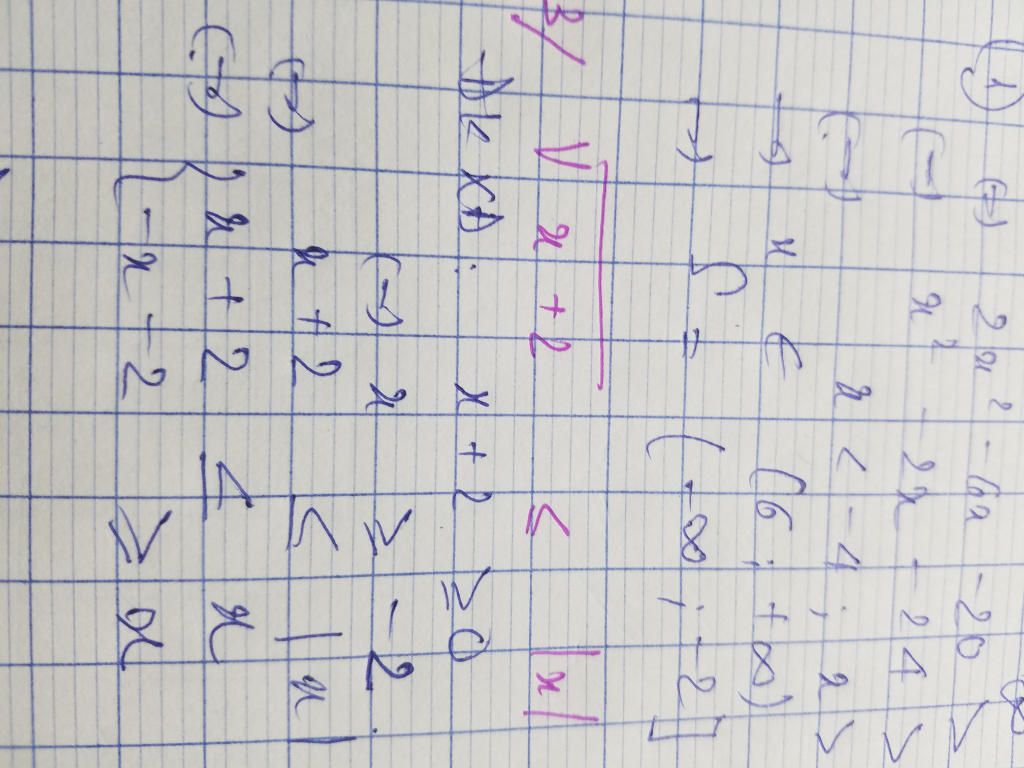 ① (⇔) 2x² - 6x - 20 >
(⇔) x² - 2x - 24 >
(⇔) x < -4 ; x >
→ x ∈ (6 ; +∞)
→ S = (-∞ ; -2]
3/ √x + 2 ≤ |x|
ĐKXĐ : x + 2 ≥ 0
(⇔) x ≥ -2.
(⇔) x + 2 ≤ |x|
(⇔) { x + 2 ≤ x
-x - 2 ≥ x